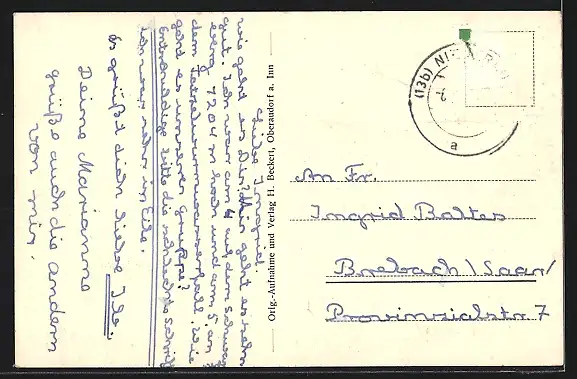 Liebe Ingrid.
Wie geht es Dir? Mir geht es sehr
gut. Ich war am 4. auf dem Schwarz
berg 1204 m hoch und am 5. an
dem Tatzelwurmwasserfall. Wie
geht es unserer Gruppe?
Entschuldige bitte die schlechte Schrift
ich war sehr in Eile.
Es grüßt dich liebe Ile,
Deine Marianne
grüße auch die andern
von mir.
Orig.-Aufnahme und Verlag H. Beckert, Oberaudorf a. Inn
(13b) NI
a
An Fr.
Ingrid Baltes
Brebach/Saar/
Provinzialstr. 7